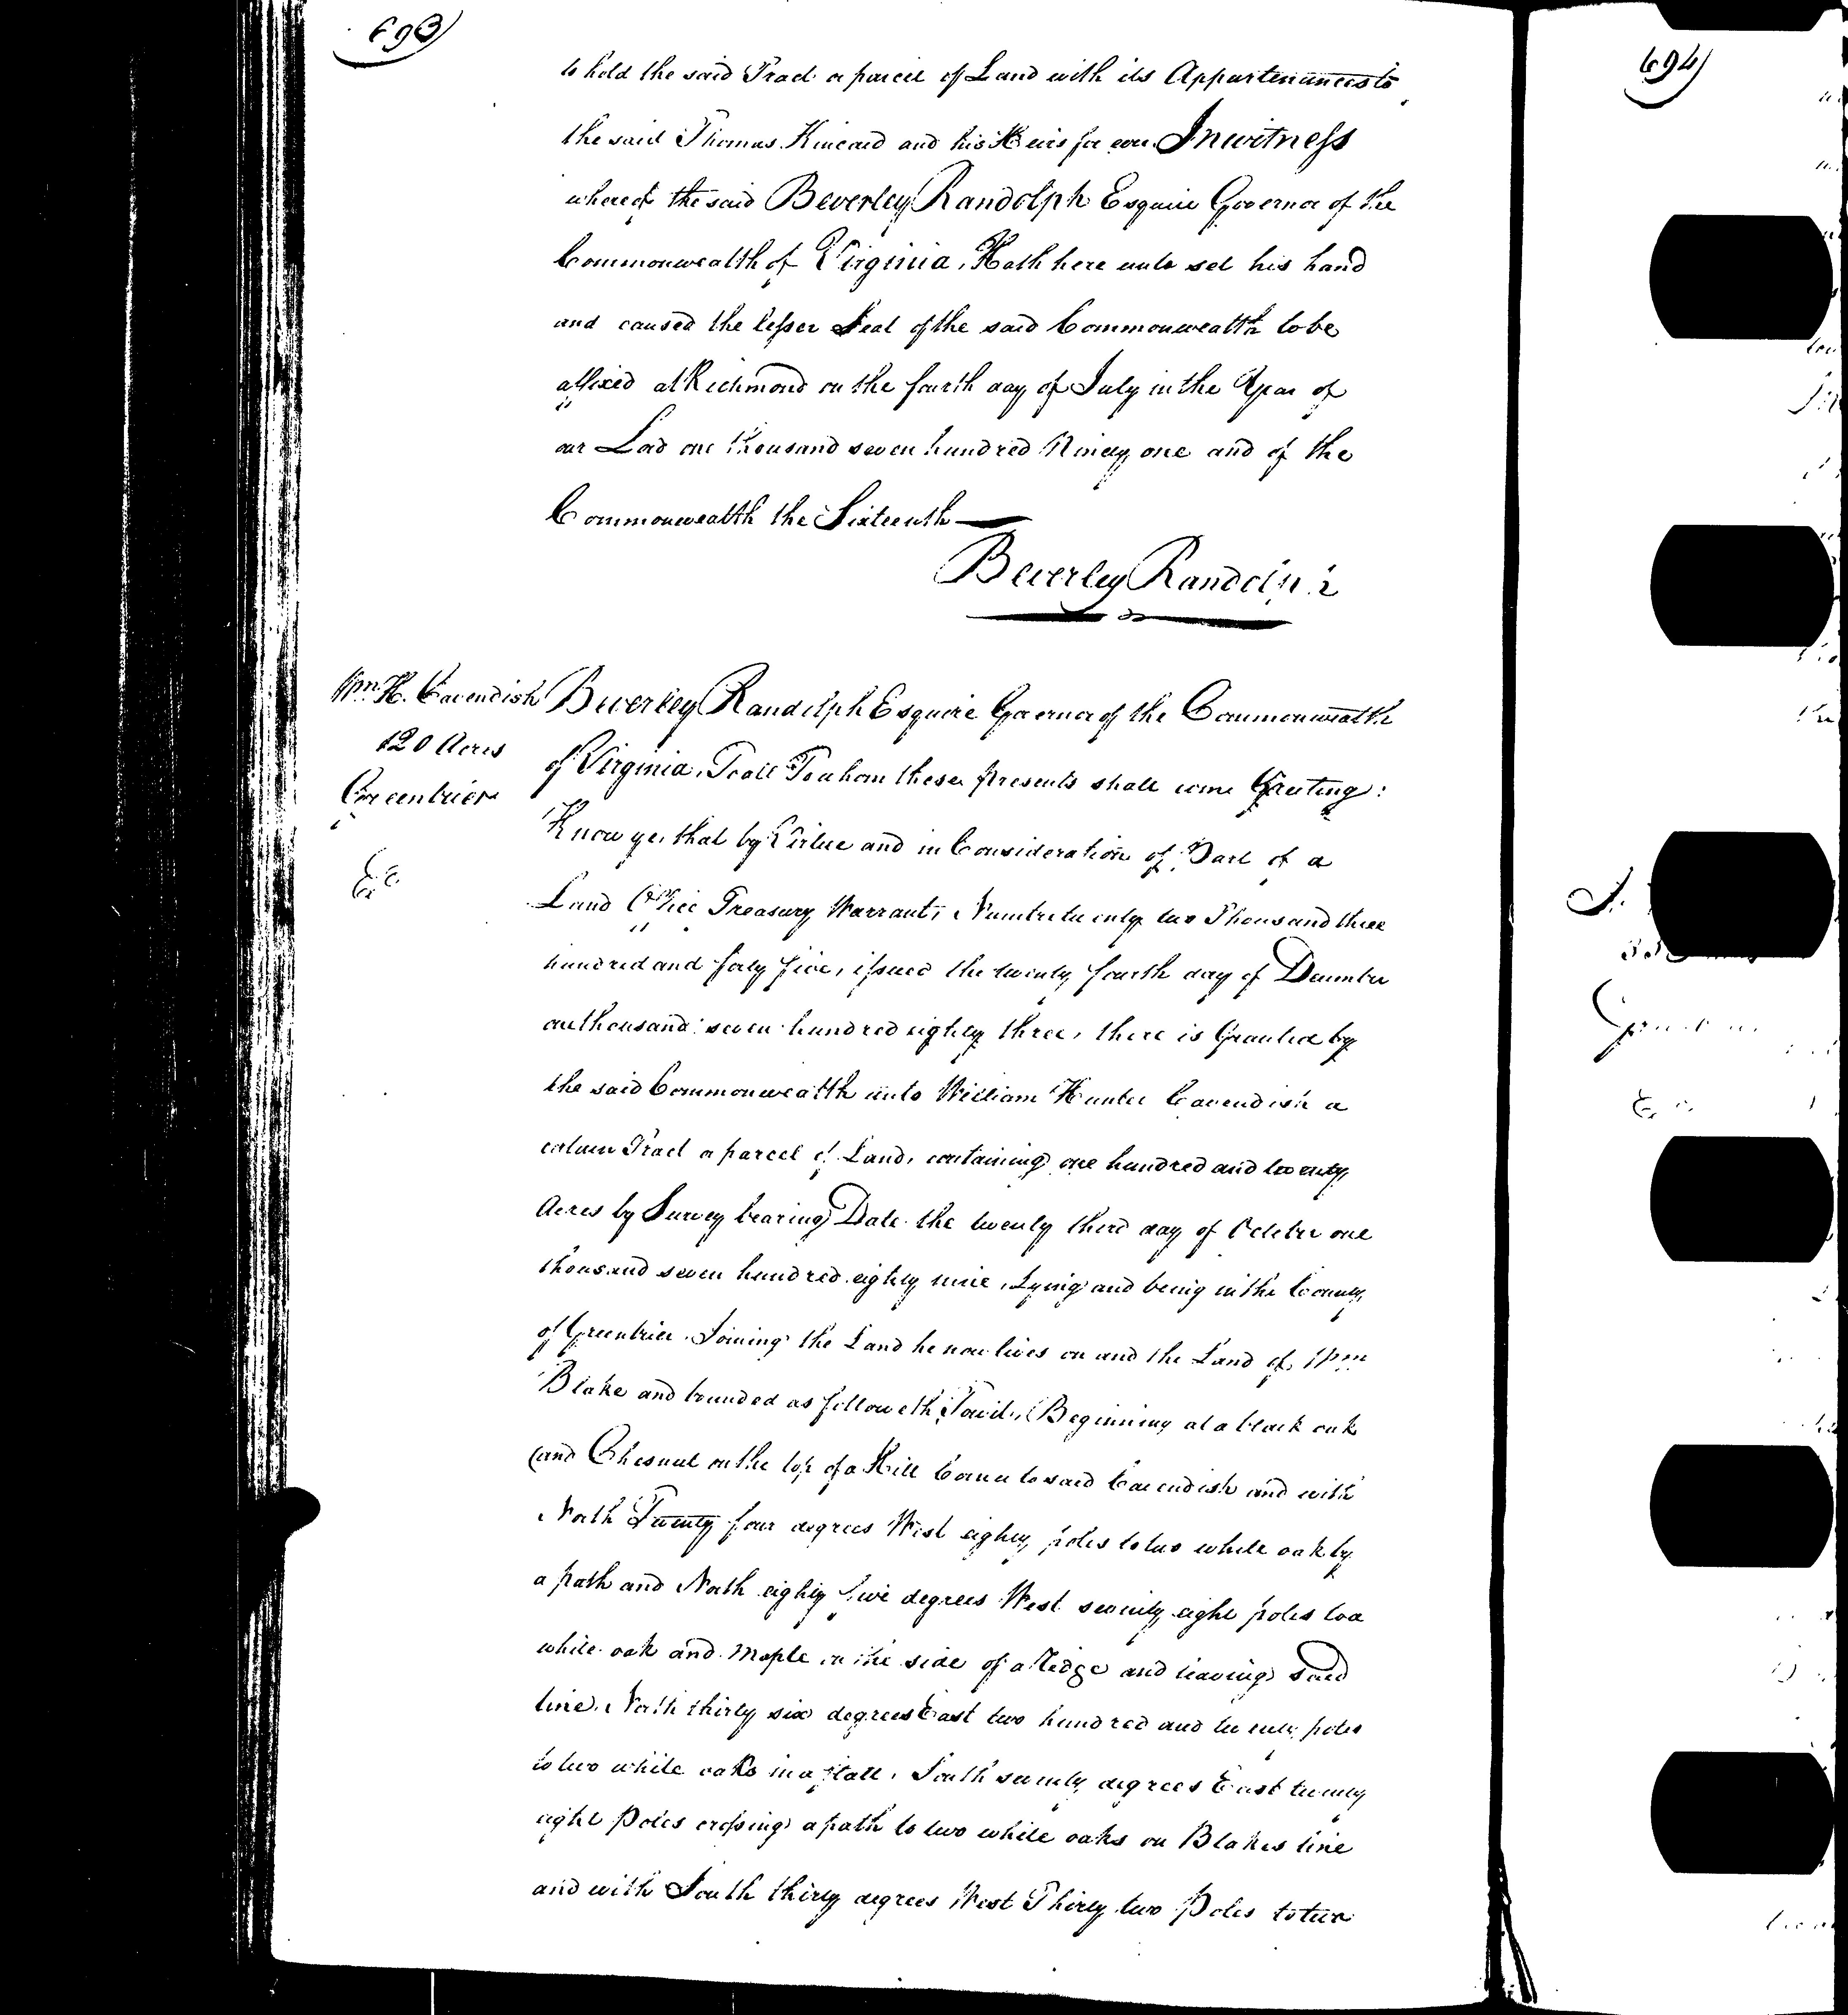 693
to hold the said Tract or parcel of Land with its Appurtenances to
the said Thomas Kincaid and his Heirs for ever. In witness
whereof the said Beverley Randolph Esquire Governor of the
Commonwealth of Virginia, Hath here unto set his hand
and caused the lesser Seal of the said Commonwealth to be
affixed at Richmond on the fourth day of July in the Year of
our Lord one thousand seven hundred Ninety one and of the
Commonwealth the Sixteenth
Beverley Randolph
Wm. H. Cavendish
120 Acres
Greenbrier
Beverley Randolph Esquire Governor of the Commonwealth
of Virginia, To all To whom these presents shall come Greeting:
Know ye, that by Virtue and in Consideration of Part of a
Land Office Treasury Warrant, Number twenty two Thousand three
hundred and forty five, issued the twenty fourth day of December
one thousand seven hundred eighty three, there is Granted by
the said Commonwealth unto William Hunter Cavendish a
certain Tract or parcel of Land, containing one hundred and twenty
Acres by Survey bearing Date the twenty third day of October one
thousand seven hundred eighty nine, Lying and being in the County
of Greenbrier Joining the Land he now lives on and the Land of Wm
Blake and bounded as followeth, Towit, Beginning at a black oak
and Chesnut on the top of a Hill Corner to said Cavendish and with
North Twenty four degrees West eighty poles to two white oak by
a path and North eighty five degrees West seventy eight poles to a
white oak and maple on the side of a Ridge and leaving said
line, North thirty six degrees East two hundred and twenty poles
to two white oaks in a flatt, South seventy degrees East twenty
eight Poles crossing a path to two white oaks on Blakes line
and with South thirty degrees West Thirty two Poles to two
694